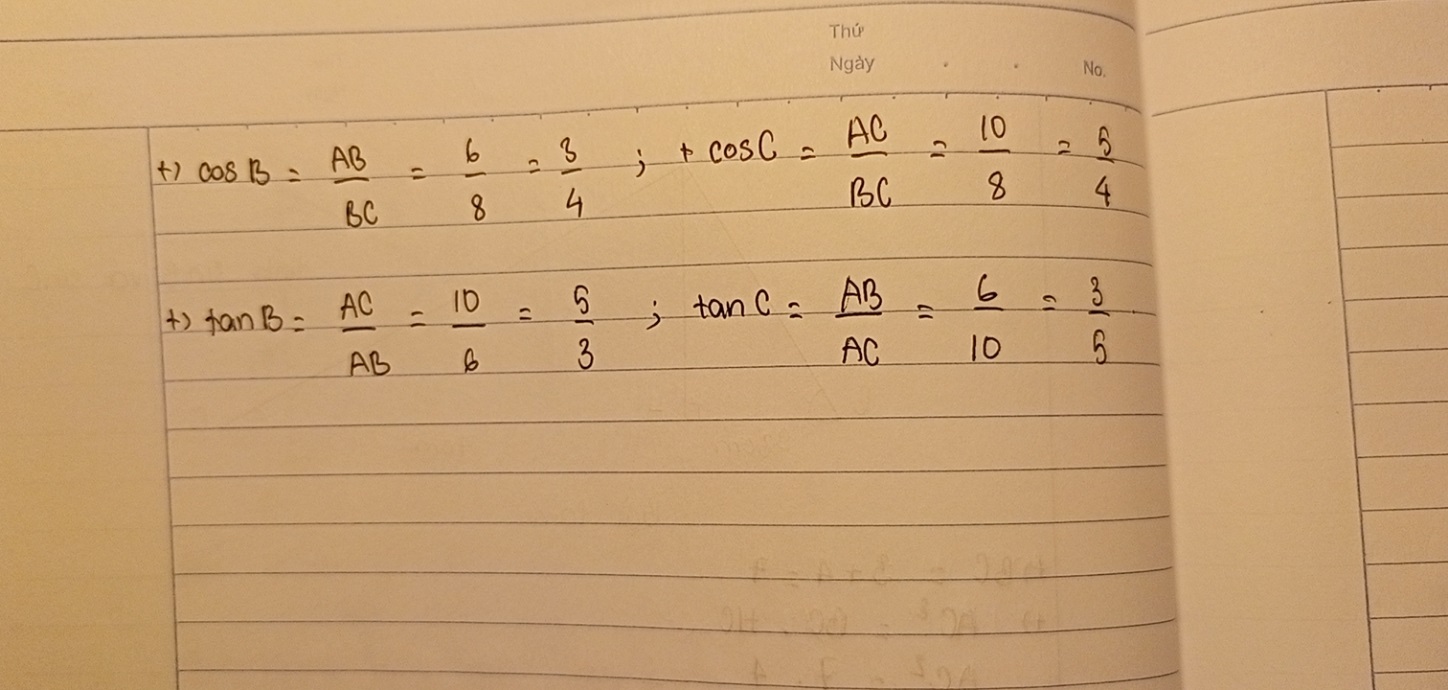 Thứ
Ngày . . No.
+) cos B = AB/BC = 6/8 = 3/4 ; + cos C = AC/BC = 10/8 = 5/4
+) tan B = AC/AB = 10/6 = 5/3 ; tan C = AB/AC = 6/10 = 3/5